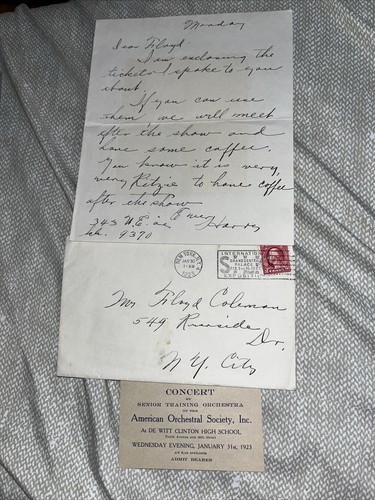 Monday
Dear Floyd
I am enclosing the
tickets I spoke to you
about
If you can use
them we will meet
after the show and
have some coffee.
You know it is very,
very Ritzie to have coffee
after the show
Ever
Harry
9370
NEW YORK, N.Y.
JAN 30
1923
INTERNATIONAL
GRAND CENTRAL
PALACE
EXPOSITION
Mr Floyd Coleman
549 Riverside
Dr.
N Y. City
CONCERT
BY
SENIOR TRAINING ORCHESTRA
OF THE
American Orchestral Society, Inc.
At DE WITT CLINTON HIGH SCHOOL
Tenth Avenue and 59th Street
WEDNESDAY EVENING, JANUARY 31st, 1923
AT 8.15 O'CLOCK
ADMIT BEARER